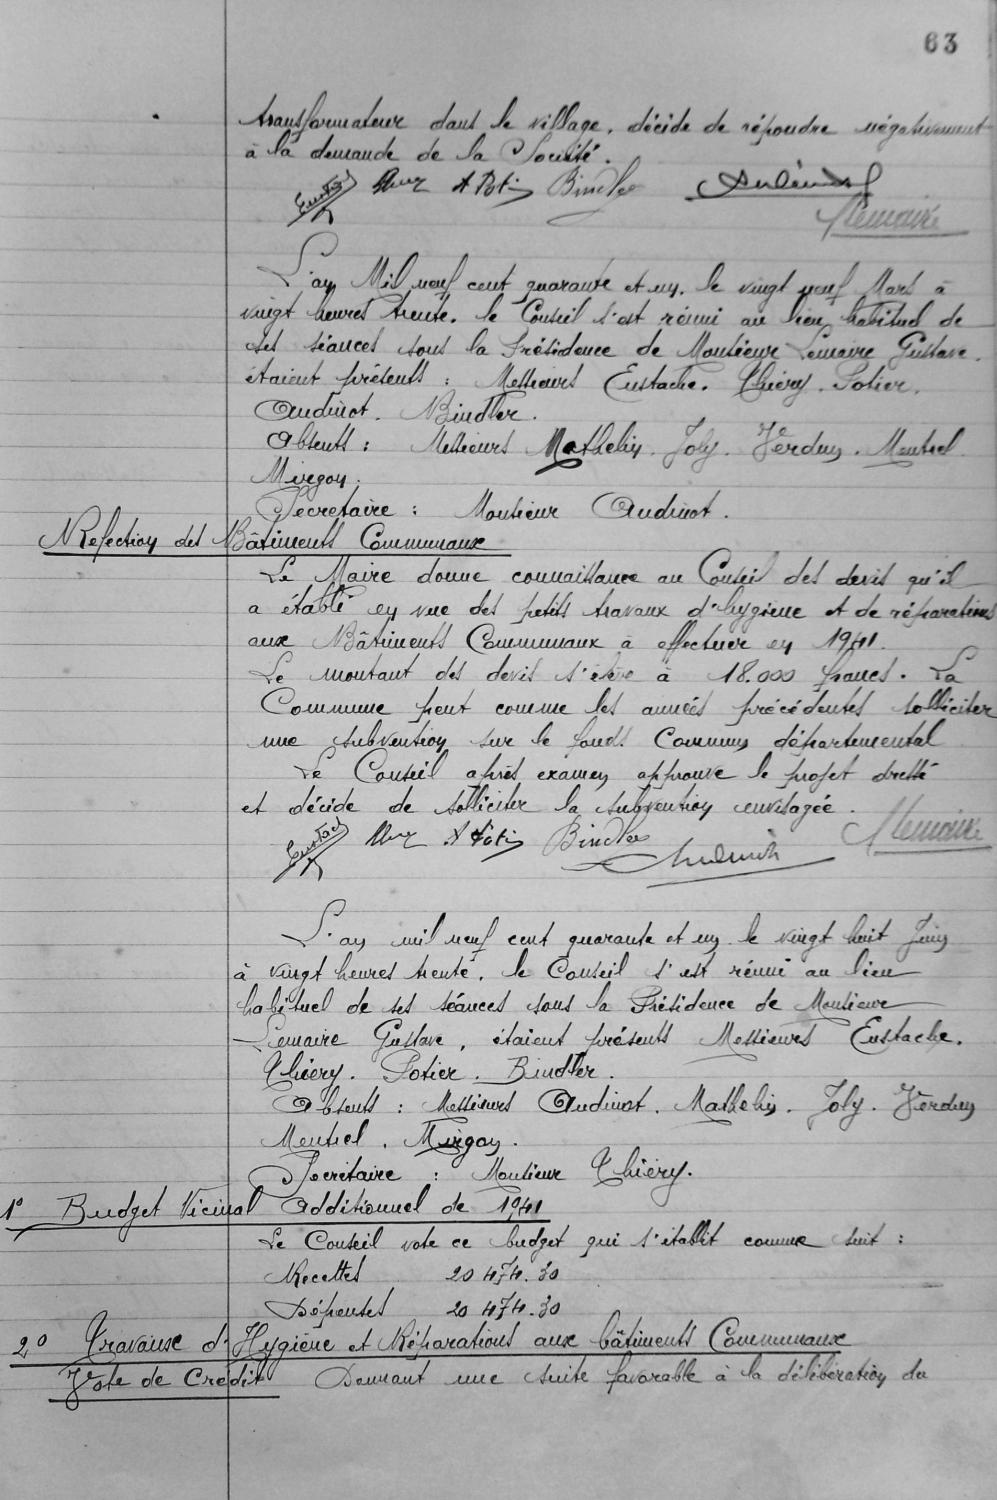 63
transformateur dans le village, décide de répondre négativement
à la demande de la Société.
Eustache A Potier Bindler Audinot
GLemaire
L'an Mil neuf cent quarante et un, le vingt neuf Mars à
vingt heures trente, le Conseil s'est réuni au lieu habituel de
ses séances sous la Présidence de Monsieur Lemaire Gustave.
étaient présents : Messieurs Eustache. Thiéry. Potier.
Audinot. Bindler.
Absents : Messieurs Mathelin. Joly. Verdun. Mentrel
Mirgon.
Secrétaire : Monsieur Audinot.
Refection des Bâtiments Communaux
Le Maire donne connaissance au Conseil des devis qu'il
a établi en vue des petits travaux d'hygiène et de réparations
aux Bâtiments Communaux à effectuer en 1941.
Le montant des devis s'élève à 18.000 francs. La
Commune peut comme les années précédentes solliciter
une subvention sur le fonds Commun départemental
Le Conseil après examen approuve le projet dressé
et décide de solliciter la subvention envisagée.
Eustache A Potier Bindler Audinot GLemaire
L'an mil neuf cent quarante et un le vingt huit Juin
à vingt heures trente, le Conseil s'est réuni au lieu
habituel de ses séances sous la Présidence de Monsieur
Lemaire Gustave, étaient présents Messieurs Eustache.
Thiéry. Potier. Bindler.
Absents : Messieurs Audinot. Mathelin. Joly. Verdun
Mentrel. Mirgon.
Secrétaire : Monsieur Thiéry.
1° Budget Vicinal Additionnel de 1941
Le Conseil vote ce budget qui s'établit comme suit :
Recettes 20 474.30
Dépenses 20 474.30
2° Travaux d'Hygiène et Réparations aux bâtiments Communaux
Vote de Crédit Donnant une suite favorable à la délibération du